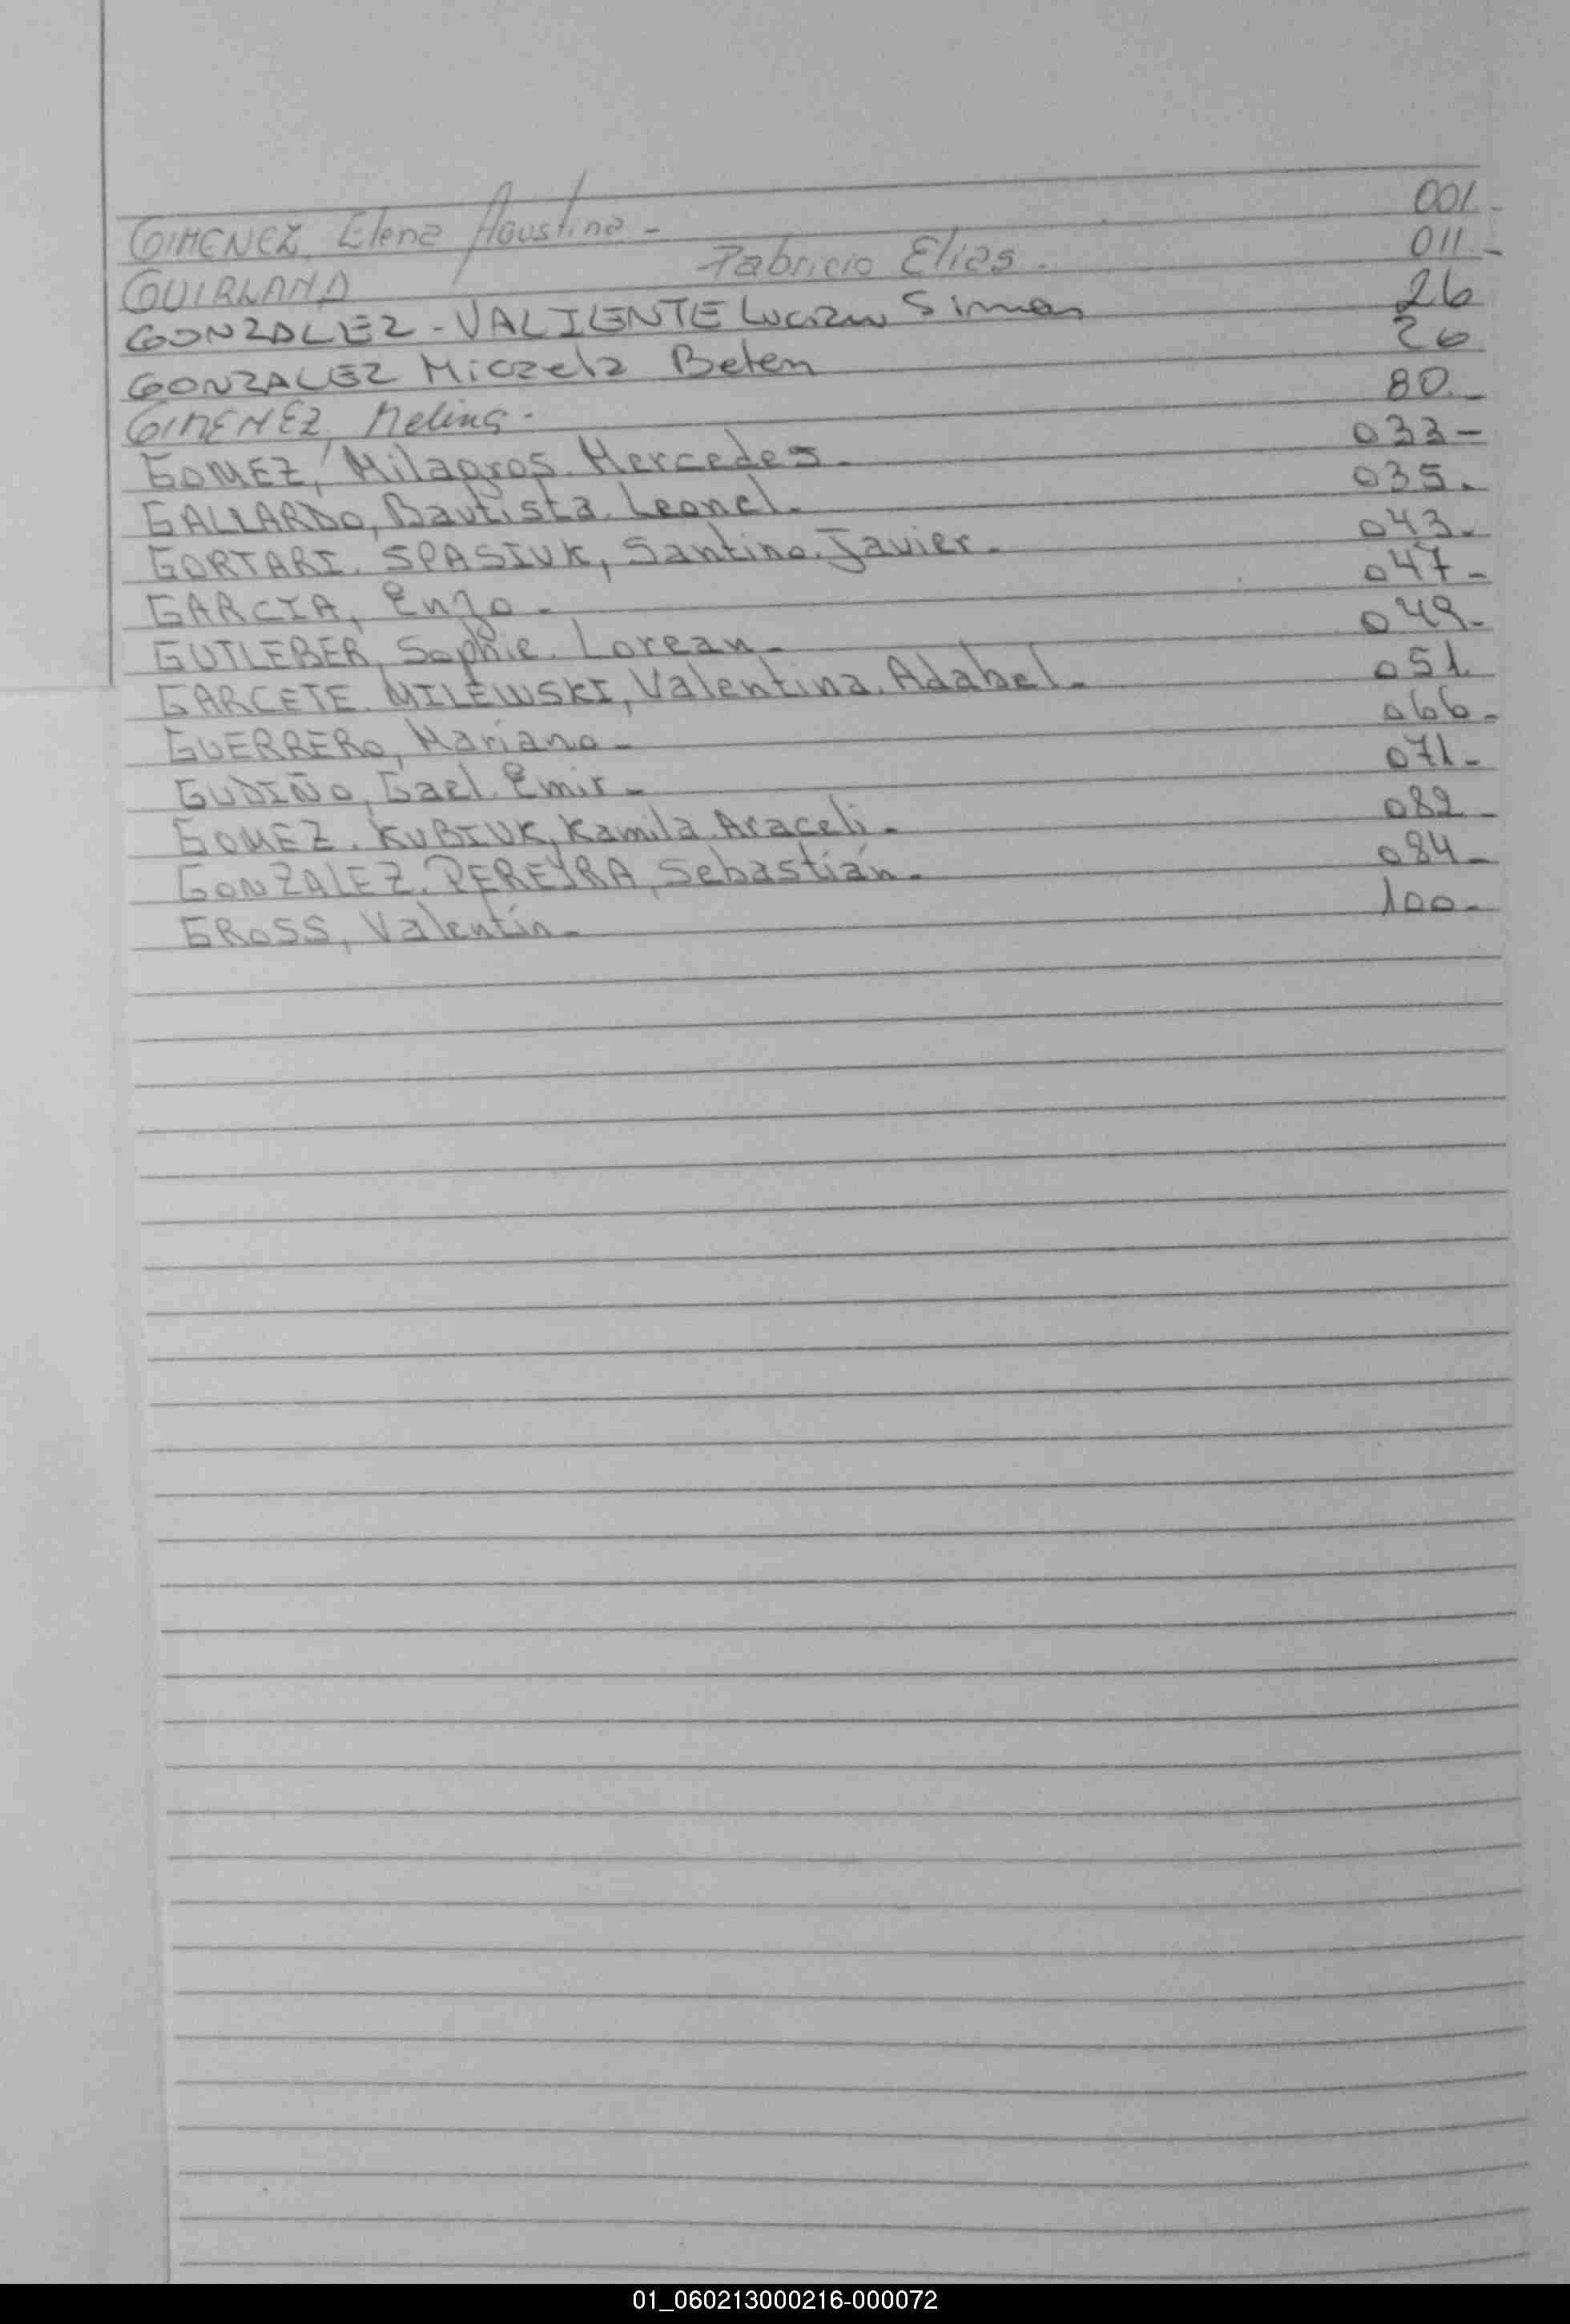 GIMENEZ, Elena Agustina - 001.-
GUIRLAND Fabricio Elias - 011.-
GONZALEZ - VALIENTE Lucian Simon 26
GONZALEZ Micaela Belen 26
GIMENEZ, Melina - 80.-
GOMEZ, Milagros. Mercedes. 033-
GALLARDO, Bautista. Leonel. 035.
GORTARI. SPASIUK, Santino. Javier. 043.
GARCIA, Enzo. 047-
GUTLEBER, Sophie. Lorean. 049.
GARCETE. MILEWSKI, Valentina. Adabel. 051.
GUERRERO, Mariano - 066-
GUDIÑO, Gael. Emir - 071-
GOMEZ. KUBIUK, Kamila. Araceli. 082-
GONZALEZ. PEREYRA, Sebastián. 084-
GROSS, Valentín. 100-
01_060213000216-000072